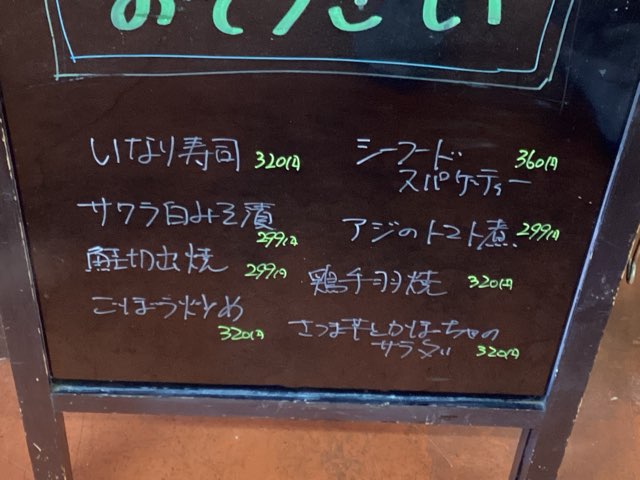 おそうざい
いなり寿司 320円
サワラ白みそ漬
299円
鮭切出焼 299円
ごぼう炒め
320円
シーフード 360円
スパゲティー
アジのトマト煮 299円
鶏手羽焼 320円
さつま芋とかぼちゃの
サラダ 320円